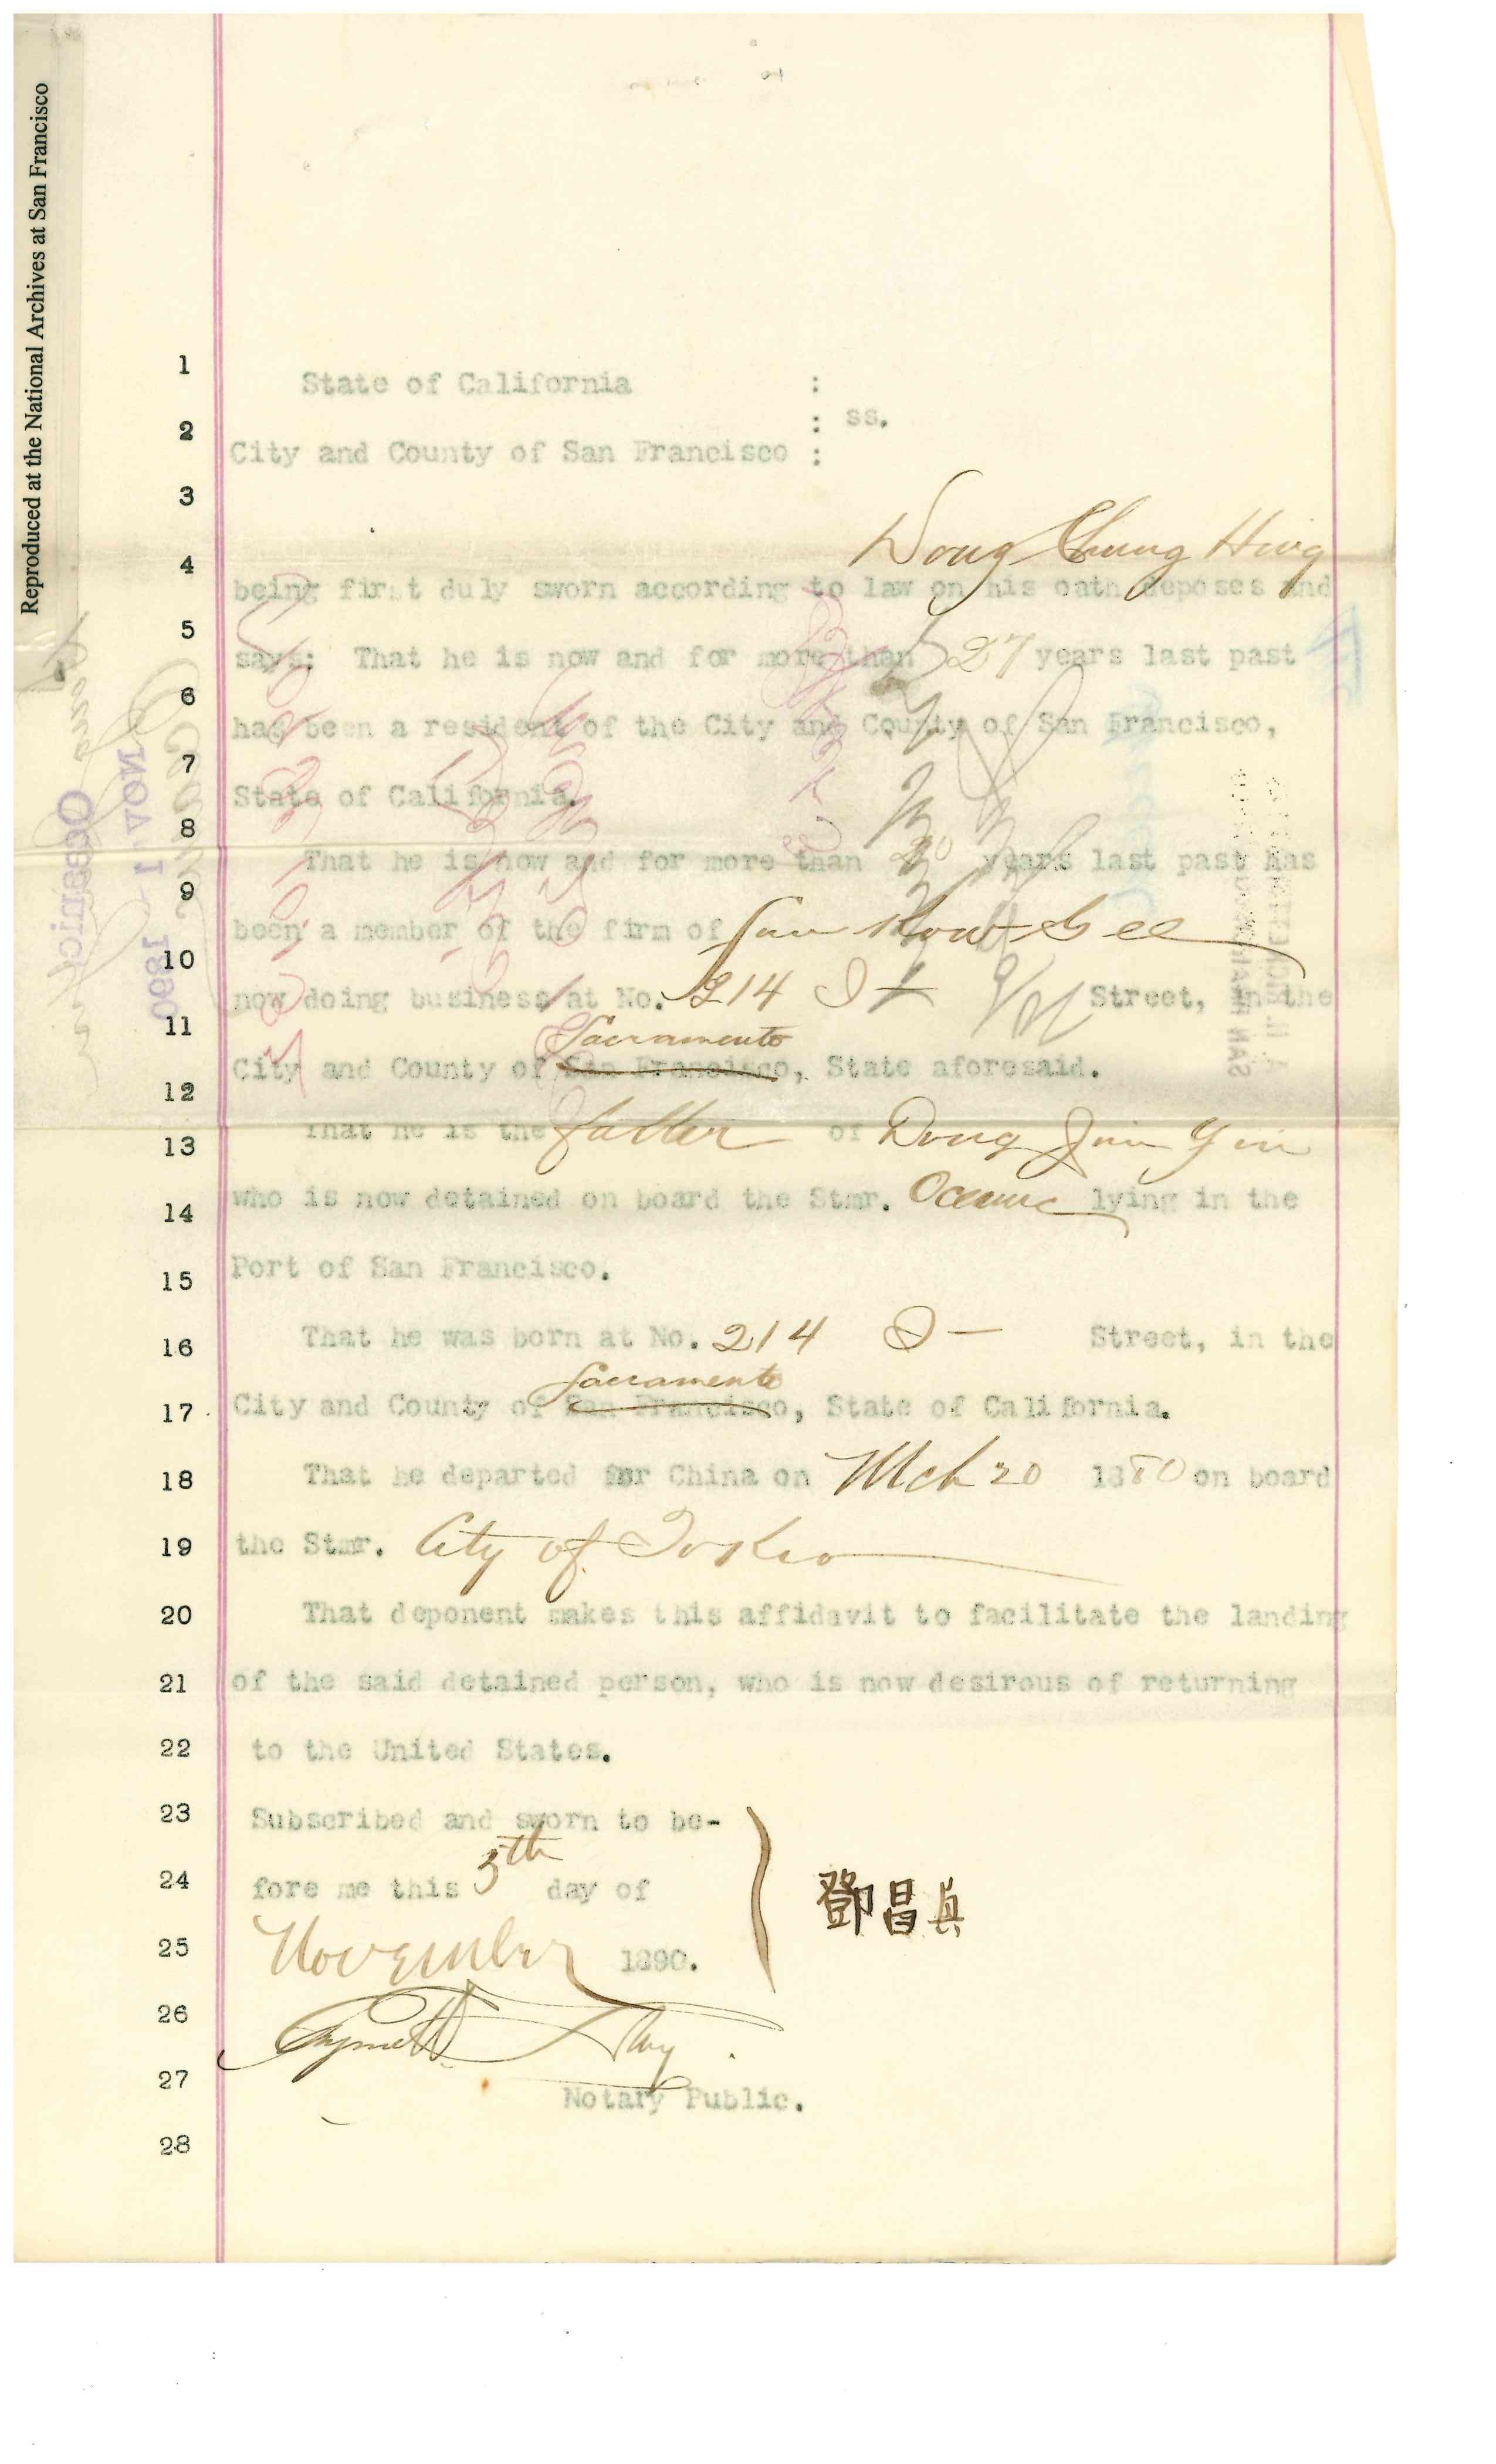 Reproduced at the National Archives at San Francisco
1
State of California :
2
: ss.
City and County of San Francisco :
3
Dong Chung Hing
4
being first duly sworn according to law on his oath deposes and
5
says: That he is now and for more than 27 years last past
6
has been a resident of the City and County of San Francisco,
7
State of California.
8
That he is now and for more than 20 years last past has
9
been a member of the firm of
10
now doing business at No. 214 Street, in the
11
Sacramento
City and County of San Francisco, State aforesaid.
12
13
That he is the father of Dong
14
who is now detained on board the Stmr. Oceanic lying in the
15
Port of San Francisco.
16
That he was born at No. 214 Street, in the
Sacramento
17
City and County of San Francisco, State of California.
18
That he departed for China on Mch 20 1880 on board
19
the Stmr. City of Tokio
20
That deponent makes this affidavit to facilitate the landing
21
of the said detained person, who is now desirous of returning
22
to the United States.
23
Subscribed and sworn to be-
24
fore me this 5th day of
鄧昌
25
November 1890.
26
27
Notary Public.
28
Oceanic
NOV 1 - 1890